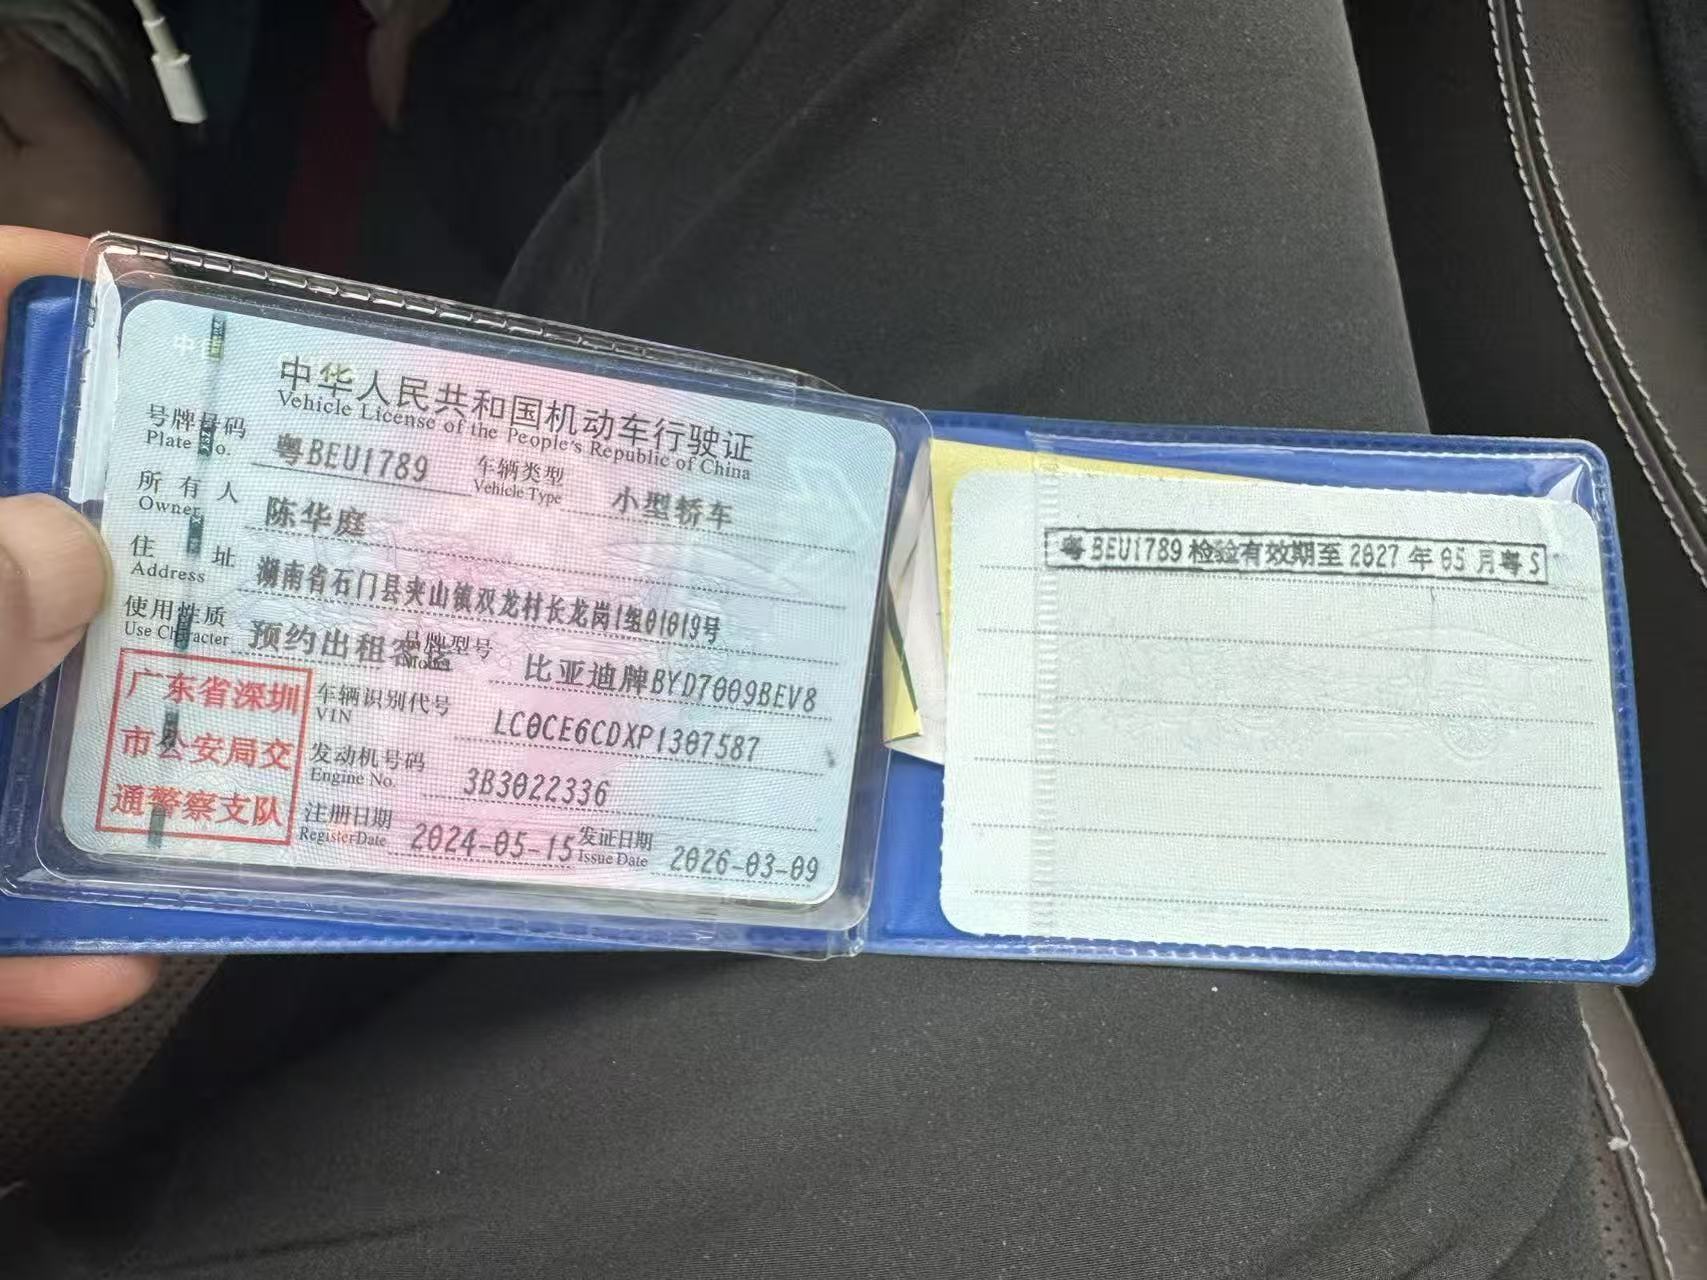 中华人民共和国机动车行驶证
Vehicle License of the People's Republic of China
号牌号码 粤BEU1789 车辆类型 小型轿车
Plate No. Vehicle Type
所有人 陈华庭
Owner
住址 湖南省石门县夹山镇双龙村长龙岗1组01019号
Address
使用性质 预约出租客运 品牌型号 比亚迪牌BYD7009BEV8
Use Character Model
车辆识别代号 LC0CE6CDXP1307587
VIN
发动机号码 3B3022336
Engine No.
注册日期 2024-05-15 发证日期 2026-03-09
Register Date Issue Date
广东省深圳
市公安局交
通警察支队
粤BEU1789检验有效期至2027年05月粤S